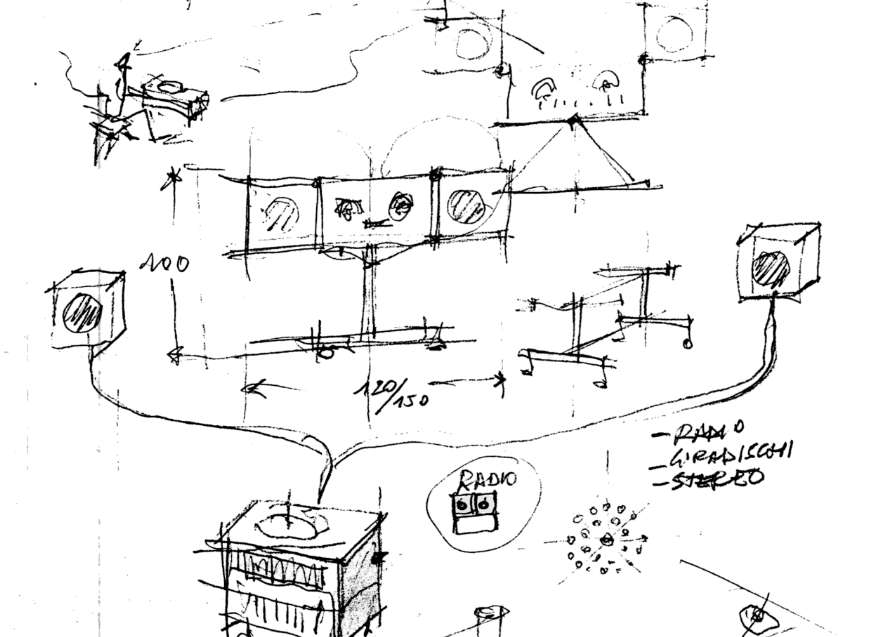 100
120/150
- RADIO
- GIRADISCHI
- STEREO
RADIO